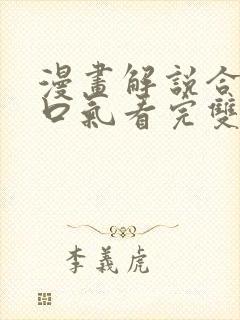 漫畫解說合
口氣看完雙
李義虎